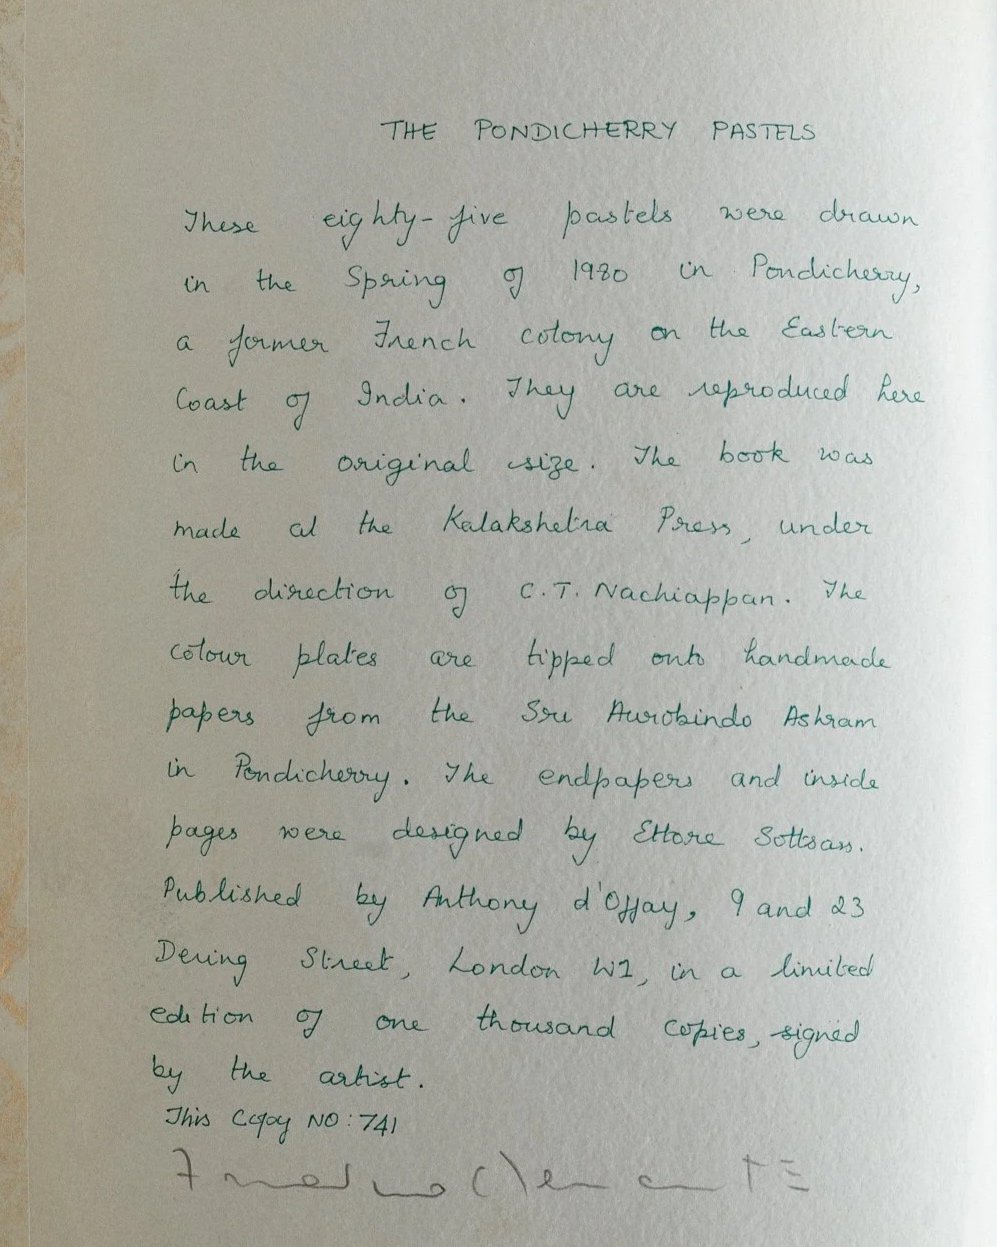 THE PONDICHERRY PASTELS
These eighty-five pastels were drawn
in the Spring of 1980 in Pondicherry,
a former French colony on the Eastern
Coast of India. They are reproduced here
in the original size. The book was
made at the Kalakshetra Press, under
the direction of C.T. Nachiappan. The
colour plates are tipped onto handmade
papers from the Sri Aurobindo Ashram
in Pondicherry. The endpapers and inside
pages were designed by Ettore Sottsass.
Published by Anthony d'Offay, 9 and 23
Dering Street, London W1, in a limited
edition of one thousand copies, signed
by the artist.
This Copy NO: 741
Francesco Clemente